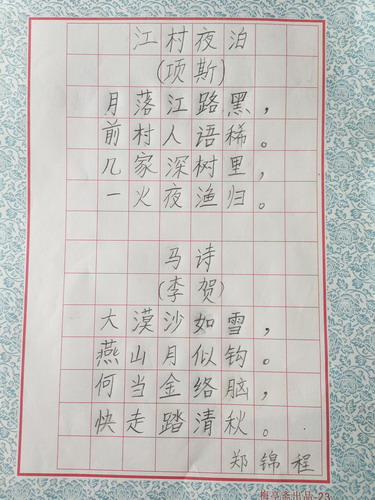 江村夜泊
(项斯)
月落江路黑，
前村人语稀。
几家深树里，
一火夜渔归。
马诗
(李贺)
大漠沙如雪，
燕山月似钩。
何当金络脑，
快走踏清秋。
郑锦程
梅亭斋出品-23